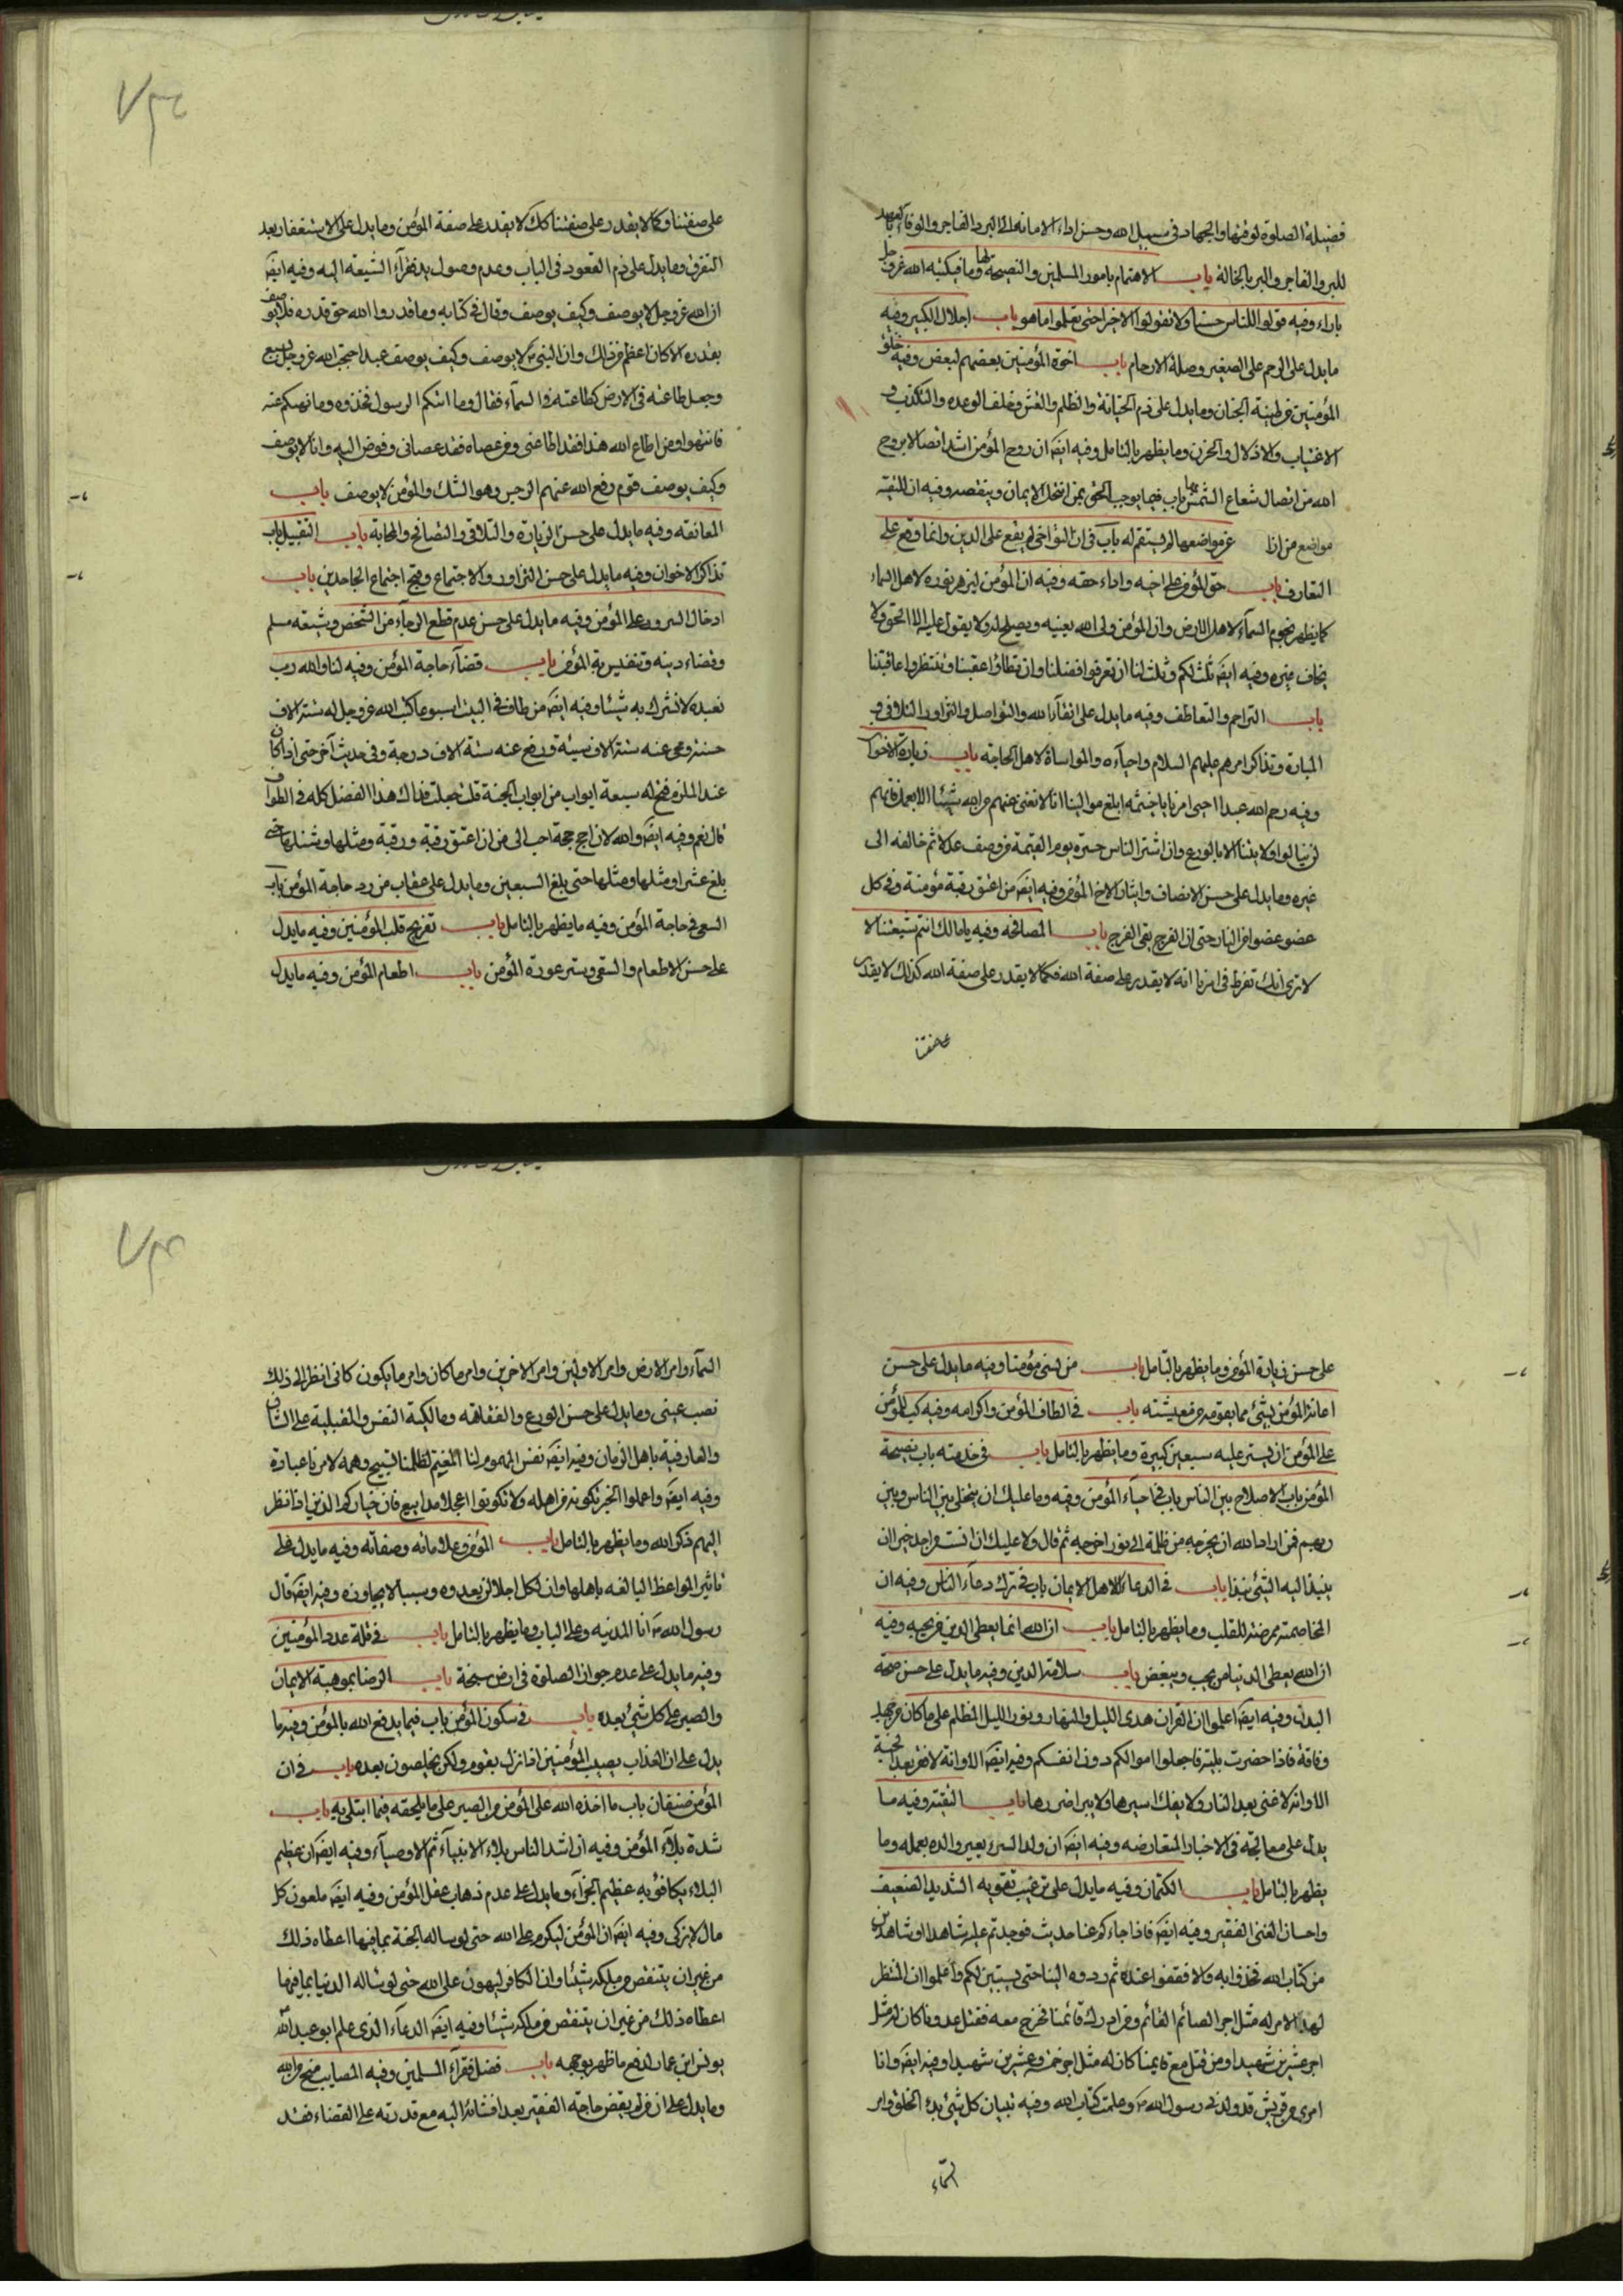 فضيلة الصلوة لوقتها والجهاد فى سبيل الله وحسن اداء الامانة الى البر والفاجر والوفاء بالعهد
للبر والفاجر والبر بالخالة باب الاهتمام بامور المسلمين والنصيحة لها وما فيكبته الله عز وجل
باراء وفيه قولوا للناس حسنا ولا تقولوا الا خيرا حتى تعلموا ما هو باب اجلال الكبير وفيه
ما يدل على الرحم على الصغير وصلة الارحام باب اخوة المؤمنين بعضهم لبعض وفيه خلق
المؤمنين من طينة الجنان وما يدل على ذم الخيانة والظلم والغش وخلف الوعده والتكذيب و
الاغتياب والاذلال والحزن وما يظهر بالتامل وفيه ايضا ان روح المؤمن اشد اتصالا بروح
الله من اتصال شعاع الشمس بها باب فيما يوجب الحق بمن انتحل الايمان وينقصه وفيه ان للتقية
مواضع من ازا عن مواضعها لم يستقم له باب فى ان التواخى لم يقع على الدين وانما وقع على
التعارف باب حق المؤمن على اخيه واداء حقه وفيه ان المؤمن ليزهر نوره لاهل السماء
كما يظهر نجوم السماء لاهل الارض وان المؤمن ولى الله يعينه ويصلح له ولا يقول عليه الا الحق ولا
يخاف غيره وفيه ايضا ثلث لكم وثلث لنا ان تعرفوا فضلنا وان تطاؤا عقبنا وتنتظروا عاقبتنا
باب التراحم والتعاطف وفيه ما يدل على اتقاء الله والتواصل والتزاور والتلاقى و
المبارة وتذاكر امرهم عليهم السلام واحياءه والمواساة لاهل الحاجة باب زيارة الاخوان
وفيه رحم الله عبدا احيى امرنا يا خيثمه ابلغ موالينا انا لا نغنى عنهم من الله شيئا الا بعمل فانهم
لن ينالوا ولايتنا الا بالورع وان اشد الناس حسرة يوم القيمة من وصف عدلا ثم خالفه الى
غيره وما يدل على حسن الانصاف وايثار الاخ المؤمن وفيه ايضا من اعتق رقبة مؤمنة وقى كل
عضو عضوا من النار حتى ان الفرج يقى الفرج باب المصافحه وفيه يا مالك انتم شيعتنا الا
لا ترى انك تفرط فى امرنا انه لا يقدر على صفة الله فكما لا يقدر على صفة الله كذلك لا يقدر
على صفتنا
على صفتنا وكما لا يقدر على صفتنا كك لا يقدر على صفة المؤمن وما يدل على الاستغفار بعد
التفرق وما يدل على ذم القعود فى الباب وعدم وصول يد فقراء الشيعة اليه وفيه ايضا
ان الله عز وجل لا يوصف وكيف يوصف وقال فى كتابه وما قدروا الله حق قدره فلا يوصف
بقدره الا كان اعظم من ذلك وان النبى لا يوصف وكيف يوصف عبد احتجب الله عز وجل بسبع
وجعل طاعته فى الارض كطاعته فى السماء فقال وما اتيكم الرسول فخذوه وما نهيكم عنه
فانتهوا ومن اطاع الله هذا فقد اطاعنى ومن عصاه فقد عصانى وفوض اليه وانا لا يوصف
وكيف يوصف قوم رفع الله عنهم الرجس وهو الشك والمؤمن لا يوصف باب
المعانقه وفيه ما يدل على حسن الزيارة والتلاقى والتصافح والمحابة باب التقبيل باب
تذاكر الاخوان وفيه ما يدل على حسن التزاور والاجتماع وقبح اجتماع الجاحدين باب
ادخال السرور على المؤمن وفيه ما يدل على حسن عدم قطع الرجاء من الشخص وشيعة مسلم
وقضاء دينه وتنفيس كربة المؤمن باب قضاء حاجة المؤمن وفيه لنا والله رب
نعبده لا نشرك به شيئا وفيه ايضا من طاف فى البيت اسبوعا كتب الله عز وجل له ستة الاف
حسنة ومحى عنه ستة الاف سيئة ورفع عنه ستة الاف درجة وفى حديث آخر حتى اذا كان
عند الملتزم فتح له سبعة ابواب من ابواب الجنة قلت جعلت فداك هذا الفضل كله فى الطواف
قال نعم وفيه ايضا والله لان احج حجة احب الى من ان اعتق رقبة ورقبة ومثلها ومثلها حتى
بلغ عشرا ومثلها ومثلها حتى بلغ السبعين وما يدل على عقاب من رد حاجة المؤمن باب
السعى فى حاجة المؤمن وفيه ما يظهر بالتامل باب تفريح قلب المؤمنين وفيه ما يدل
على حسن الاطعام والسقى وستر عورة المؤمن باب اطعام المؤمن وفيه ما يدل
على حسن زيارة المؤمن وما يظهر بالتامل باب من كسى مؤمنا وفيه ما يدل على حسن
اعانة المؤمن بشئ مما يقوته من معيشته باب فى الطاف المؤمن واكرامه وفيه كيب للمؤمن
على المؤمن ان يستر عليه سبعين كبيرة وما يظهر بالتامل باب فى خدمته باب نصيحة
المؤمن باب الاصلاح بين الناس باب فى احياء المؤمن وفيه وما عليك ان يتخلى بين الناس وبين
ربهم فمن اراد الله ان يخرجه من ظلمة الى نور اخرجه ثم قال ولا عليك ان انست من احد خيرا ان
ينبذ اليه الشئ نبذا باب فى الدعاء لاهل الايمان باب فى ترك دعاء الناس وفيه ان
المخاصمة ممرضة للقلب وما يظهر بالتامل باب ان الله انما يعطى الدين من يحبه وفيه
ان الله يعطى الدنيا من يحب ويبغض باب سلامة الدين وفيه ما يدل على حسن صحة
البدن وفيه ايضا اعلموا ان القران هدى الليل والنهار ونور الليل المظلم على ما كان من جهد
وفاقة فاذا حضرت بلية فاجعلوا اموالكم دون انفسكم وفيه ايضا الا وانه لا فقر بعد الجنة
الا وانه لا غنى بعد النار ولا يفك اسيرها ولا يبرا ضررها باب التقية وفيه ما
يدل على معالجة فى الاخبار المتعارضه وفيه ايضا ان ولد السوء يعير والده بعمله وما
يظهر بالتامل باب الكتمان وفيه ما يدل على ترغيب تقويه الشديد الضعيف
واحسان الغنى الفقير وفيه ايضا فاذا جاءكم عنا حديث فوجدتم عليه شاهدا او شاهدين
من كتاب الله فخذوا به والا فقفوا عنده ثم ردوه الينا حتى يستبين لكم واعلموا ان المنتظر
لهذا الامر له مثل اجر الصائم القائم ومن ادرك قائمنا فخرج معه فقتل عدونا كان له مثل
اجر عشرين شهيدا ومن قتل مع قايمنا كان له مثل اجر خمسة وعشرين شهيدا وفيه ايضا وانا
امرى من قريش قد ولدنى رسول الله وعلمت كتاب الله وفيه تبيان كل شئ بدء الخلق وامر
السماء
السماء وامر الارض وامر الاولين وامر الاخرين وامر ما كان وامر ما يكون كانى انظر الى ذلك
نصب عينى وما يدل على حسن الورع والفقاهه ومالكية النفس والمقبلية على الشان
والعارفية باهل الزمان وفيه ايضا نفس المهموم لنا المغتم لظلمنا تسبيح وهمه لامرنا عبادة
وفيه ايضا واعملوا الخير تكونوا من اهله ولا تكونوا عجلا مذاييع فان خياركم الذين اذا نظر
اليهم ذكر الله وما يظهر بالتامل باب المؤمن وعلاماته وصفاته وفيه ما يدل على
تاثير المواعظ البالغه باهلها وان لكل اجلا لن يعدوه وسببا لا يجاوزه وفيه ايضا قال
رسول الله انا المدينه وعلى الباب وما يظهر بالتامل باب فى قلة عدد المؤمنين
وفيه ما يدل على عدم جواز الصلوة فى ارض سبخة باب الرضا بموهبة الايمان
والصبر على كل شئ بعده باب فى سكون المؤمن باب فيما يدفع الله بالمؤمن وفيه ما
يدل على ان العذاب يصيب المؤمنين اذا نزل بقوم ولكن يخلصون بعده باب فى ان
المؤمن صنفان باب ما اخذه الله على المؤمن من الصبر على ما يلحقه فيما ابتلى به باب
شدة بلاء المؤمن وفيه ان اشد الناس بلاء الانبياء ثم الاوصياء وفيه ايضا ان عظيم
البلاء يكافؤ به عظيم الجزاء وما يدل على عدم ذهاب عقل المؤمن وفيه ايضا ملعون كل
مال لا يزكى وفيه ايضا ان المؤمن ليكرم على الله حتى لو ساله الجنة بما فيها اعطاه ذلك
من غير ان ينتقص من ملكه شيئا وان الكافر ليهون على الله حتى لو ساله الدنيا بما فيها
اعطاه ذلك من غير ان ينتقص من ملكه شيئا وفيه ايضا الدعاء الذى علم ابو عبد الله
يونس ابن عمار لدفع ما ظهر بوجهه باب فضل فقراء المسلمين وفيه المصايب منح من الله
وما يدل على ان من لم يقض حاجة الفقير بعد افشائه اليه مع قدرته على القضاء فقد